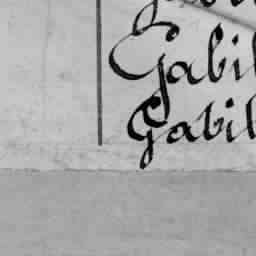 Gabil
Gabil